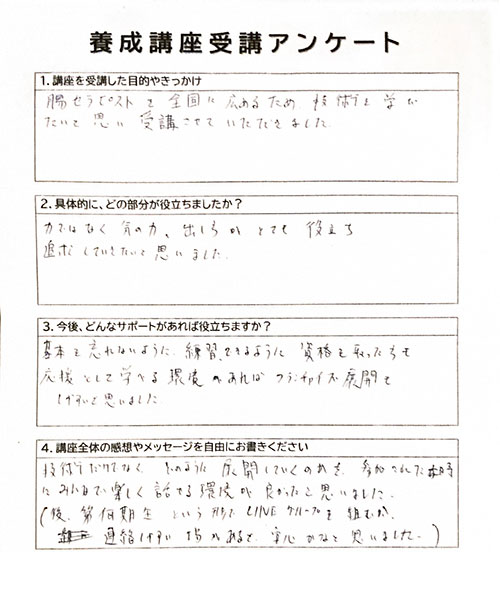 養成講座受講アンケート
1. 講座を受講した目的やきっかけ
腸セラピストを全国に広めるため 技術を学び
たいと思い 受講させていただきました.
2. 具体的に、どの部分が役立ちましたか？
力ではなく 気の力、出し方が とても 役立ち
追求していきたいと思いました.
3. 今後、どんなサポートがあれば役立ちますか？
基本を忘れないように 練習できるように 資格を取った方も
応援として学べる環境があれば フランチャイズ展開も
しやすいと思いました
4. 講座全体の感想やメッセージを自由にお書きください
技術だけでなく どのように 展開していくのかを、参加された時
にみんなで楽しく話せる環境が良かったと思いました.
(後、第何期生 という形で LINEグループを組むか、
連絡しやすい場があると、安心かなと思いました.)